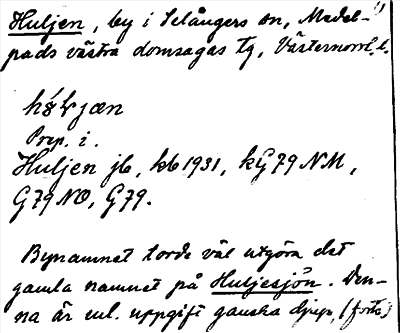 Huljen, by i Selångers sn, Medel-
pads västra domsagas tg, Västernorrl. l.
Prep. i.
Huljen jb, kb 1931, kG 79 NM,
G 79 NO, G 79.
Bynamnet torde väl utgöra det
gamla namnet på Huljesjön. Den-
na är enl. uppgift ganska djup, (forts)